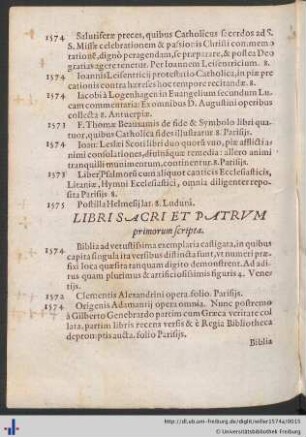 1574 Salutiferæ preces, quibus Catholicus sacerdos ad S.
S. Missæ celebrationem & passionis Christi commemo
rationē, dignò peragendam, se præparare, & postea Deo
gratias agere tenetur. Per Ioannem Leisentricium. 8.
1574 Ioannis Leisentricij protestatio Catholica, in piæ pre
cationis contra hæreses hoc tempore recitandæ. 8.
1574 Iacobi à Logenhagen in Euangelium secundum Lu
cam commentaria: Ex omnibus D. Augustini operibus
collecta 8. Antuerpiæ.
1573 F. Thomæ Beauxamis de fide & Symbolo libri qua
tuor, quibus Catholica fides illustratur 8. Parisijs.
1574 Ioan: Leslæi Scoti libri duo quorū vno, piæ afflicti a
nimi consolationes, diuináque remedia: altero animi
tranquilli munimentum, continentur. 8. Parisijs.
1573 Liber Psalmorū cum aliquot canticis Ecclesiasticis,
Litaniæ, Hymni Ecclesiastici, omnia diligenter repo
sita Parisijs 8.
1575 Postilla Helmesij lat. 8. Luduni.
LIBRI SACRI ET PATRVM
primorum scripta.
1574 Biblia ad vetustissima exemplaria castigata, in quibus
capita singula ita versibus distincta sunt, vt numeri præ
fixi loca quæsita tanquam digito demonstrent. Ad addi
tus quàm plurimus & artificiosissimis figuris 4. Vene
tijs.
1572 Clementis Alexandrini opera. folio. Parisijs.
1574 Origenis Adamantij opera omnia. Nunc postremo
à Gilberto Genebrardo partim cum Græca veritate col
lata, partim libris recens versis & è Regia Bibliotheca
depromptis aucta. folio Parisijs.
Biblia
http://dl.ub.uni-freiburg.de/diglit/willer1574a/0015
© Universitätsbibliothek Freiburg